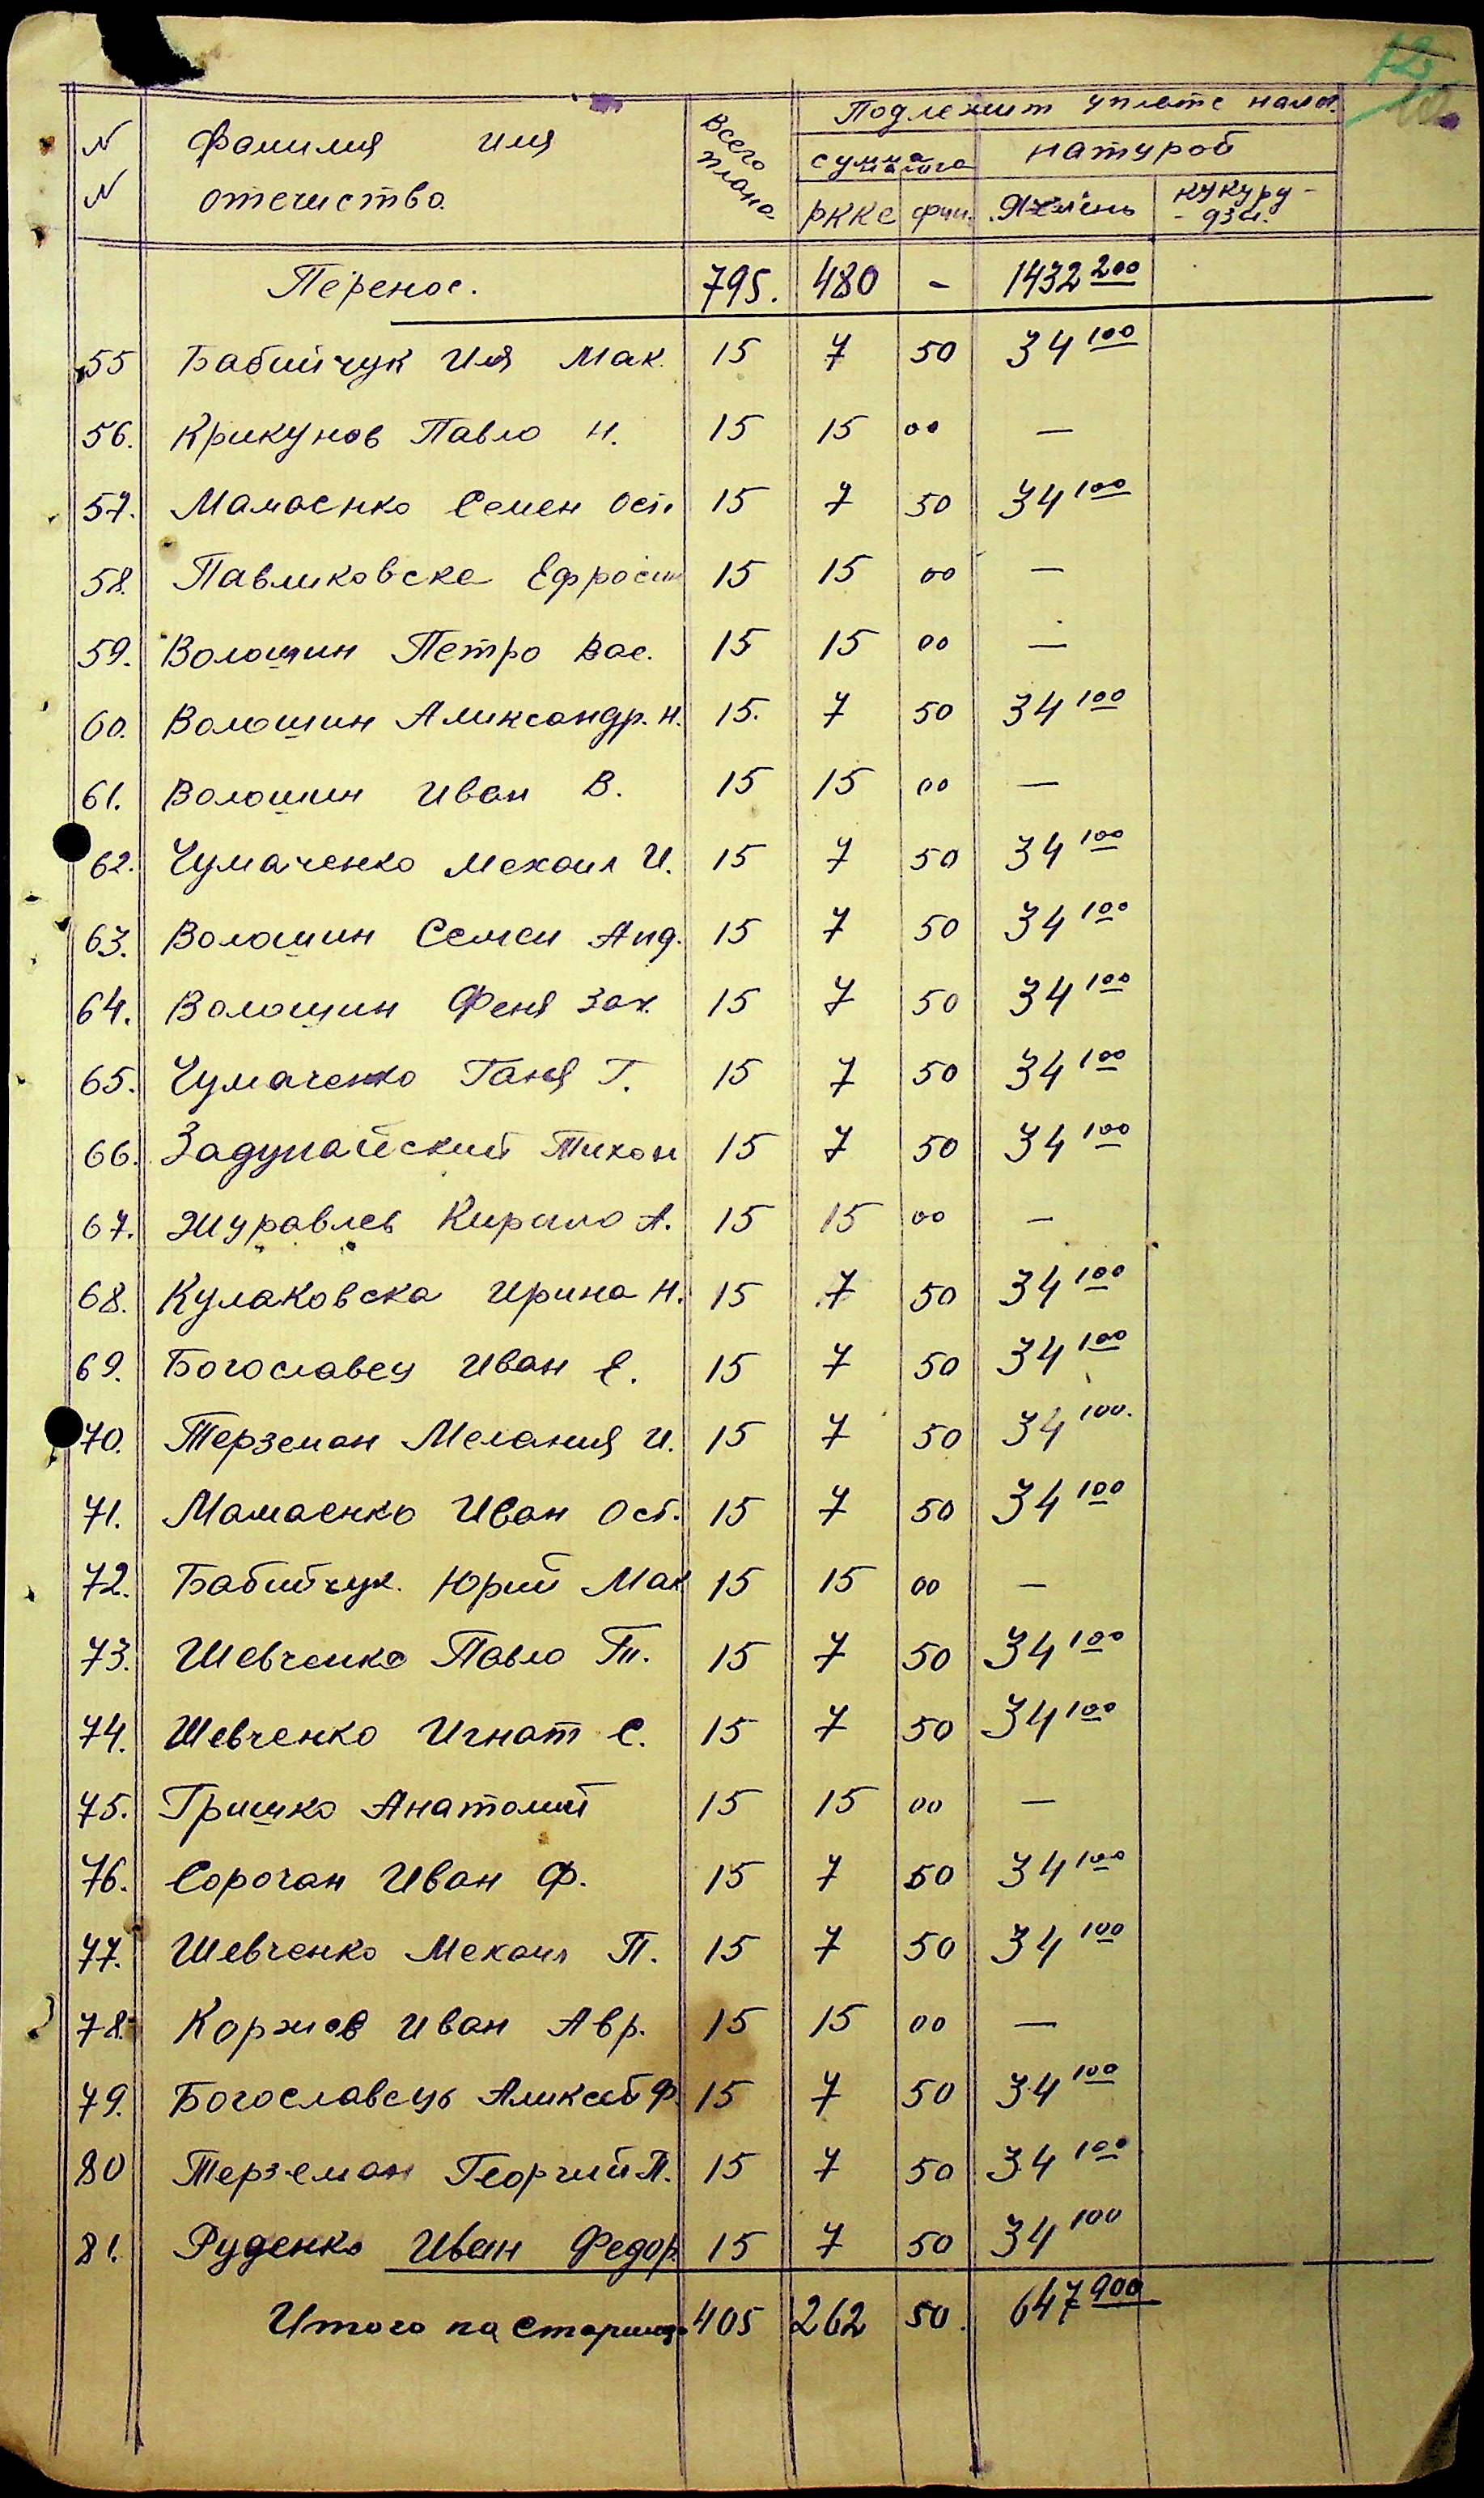 N Фамилия имя Всего плана Подлежит уплате налог.
N отечиство. сумма налога натурой
РККС фин. Ячмень кукуру-
-дзы.
Перенос. 795. 480 - 1432 200
55 Бабийчук Иля Мак. 15 7 50 34 100
56. Крикунов Павло Н. 15 15 00 —
57. Мамаенко Семен Ост. 15 7 50 34 100
58. Павликовска Ефросин 15 15 00 —
59. Волошин Петро Вас. 15 15 00 —
60. Волошин Александр. Н. 15. 7 50 34 100
61. Волошин Иван В. 15 15 00 —
62. Чумаченко Мехаил И. 15 7 50 34 100
63. Волошин Семен Анд. 15 7 50 34 100
64. Волошин Феня Зах. 15 7 50 34 100
65. Чумаченко Ганя Т. 15 7 50 34 100
66. Задунайский Тихон 15 7 50 34 100
67. Журавлев Кирило А. 15 15 00 —
68. Кулаковска Ирина Н. 15 7 50 34 100
69. Богославец Иван Е. 15 7 50 34 100
70. Терземан Мелания И. 15 7 50 34 100.
71. Мамаенко Иван Ост. 15 7 50 34 100
72. Бабийчук. Юрий Мак 15 15 00 —
73. Шевченко Павло Т. 15 7 50 34 100
74. Шевченко Игнат С. 15 7 50 34 100
75. Гришко Анатолий 15 15 00 —
76. Сорочан Иван Ф. 15 7 50 34 100
77. Шевченко Мехаил П. 15 7 50 34 100
78. Коржов Иван Авр. 15 15 00 —
79. Богославець Аликсей Ф. 15 7 50 34 100
80 Терземан Георгий П. 15 7 50 34 100
81. Руденко Иван Федор. 15 7 50 34 100
Итого на старинце 405 262 50. 647 900